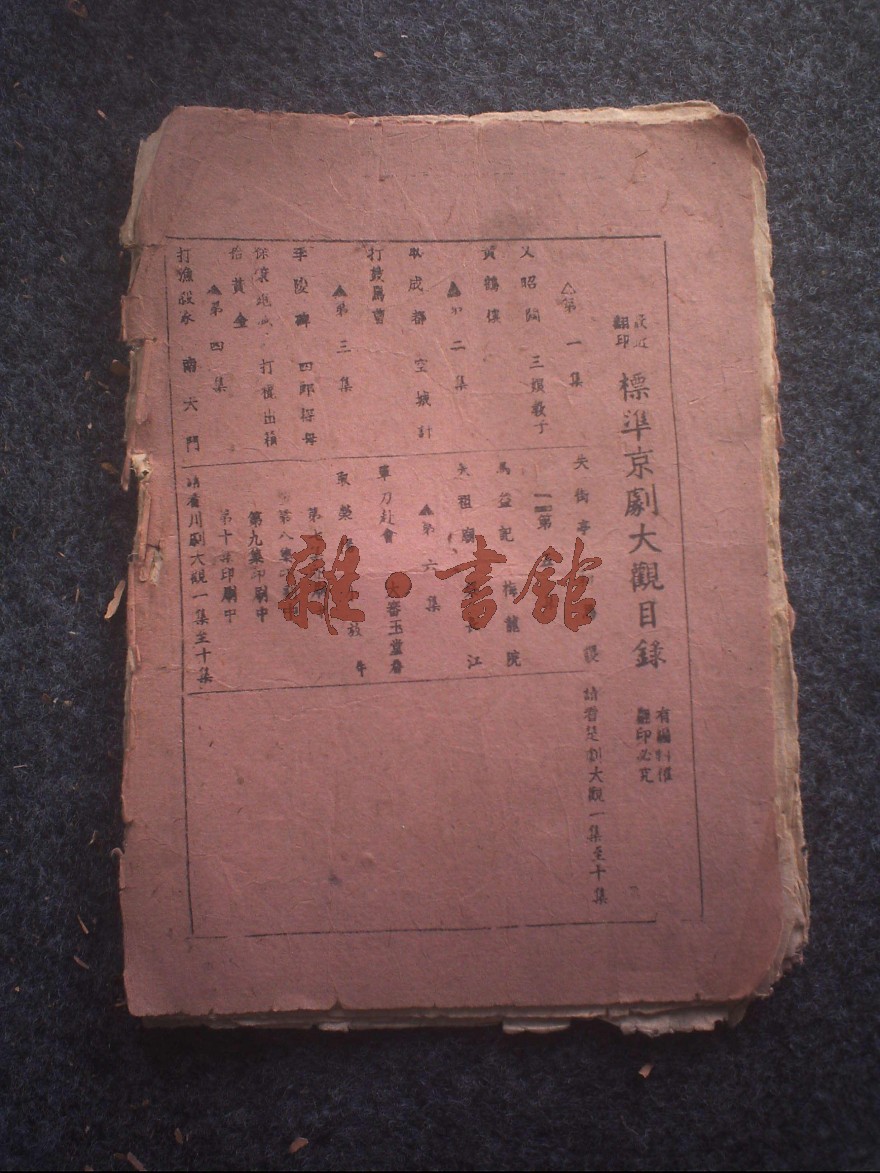 翻印
標準京劇大觀目錄
有編制權
翻印必究
△第一集
文昭關 三娘教子
黃鶴樓
▲第二集
取成都 空城計
打鼓罵曹
▲第三集
李陵碑 四郎探母
打棍出箱
拾黃金
▲第四集
打漁殺家 南天門
失街亭
第五
烏盆記 梅龍院
失祖廟 江
▲第六集
單刀赴會 大審玉堂春
取榮 放牛
第八集印刷中
第九集印刷中
第十集印刷中
請看川劇大觀一集至十集
請看楚劇大觀一集至十集
雜·書館